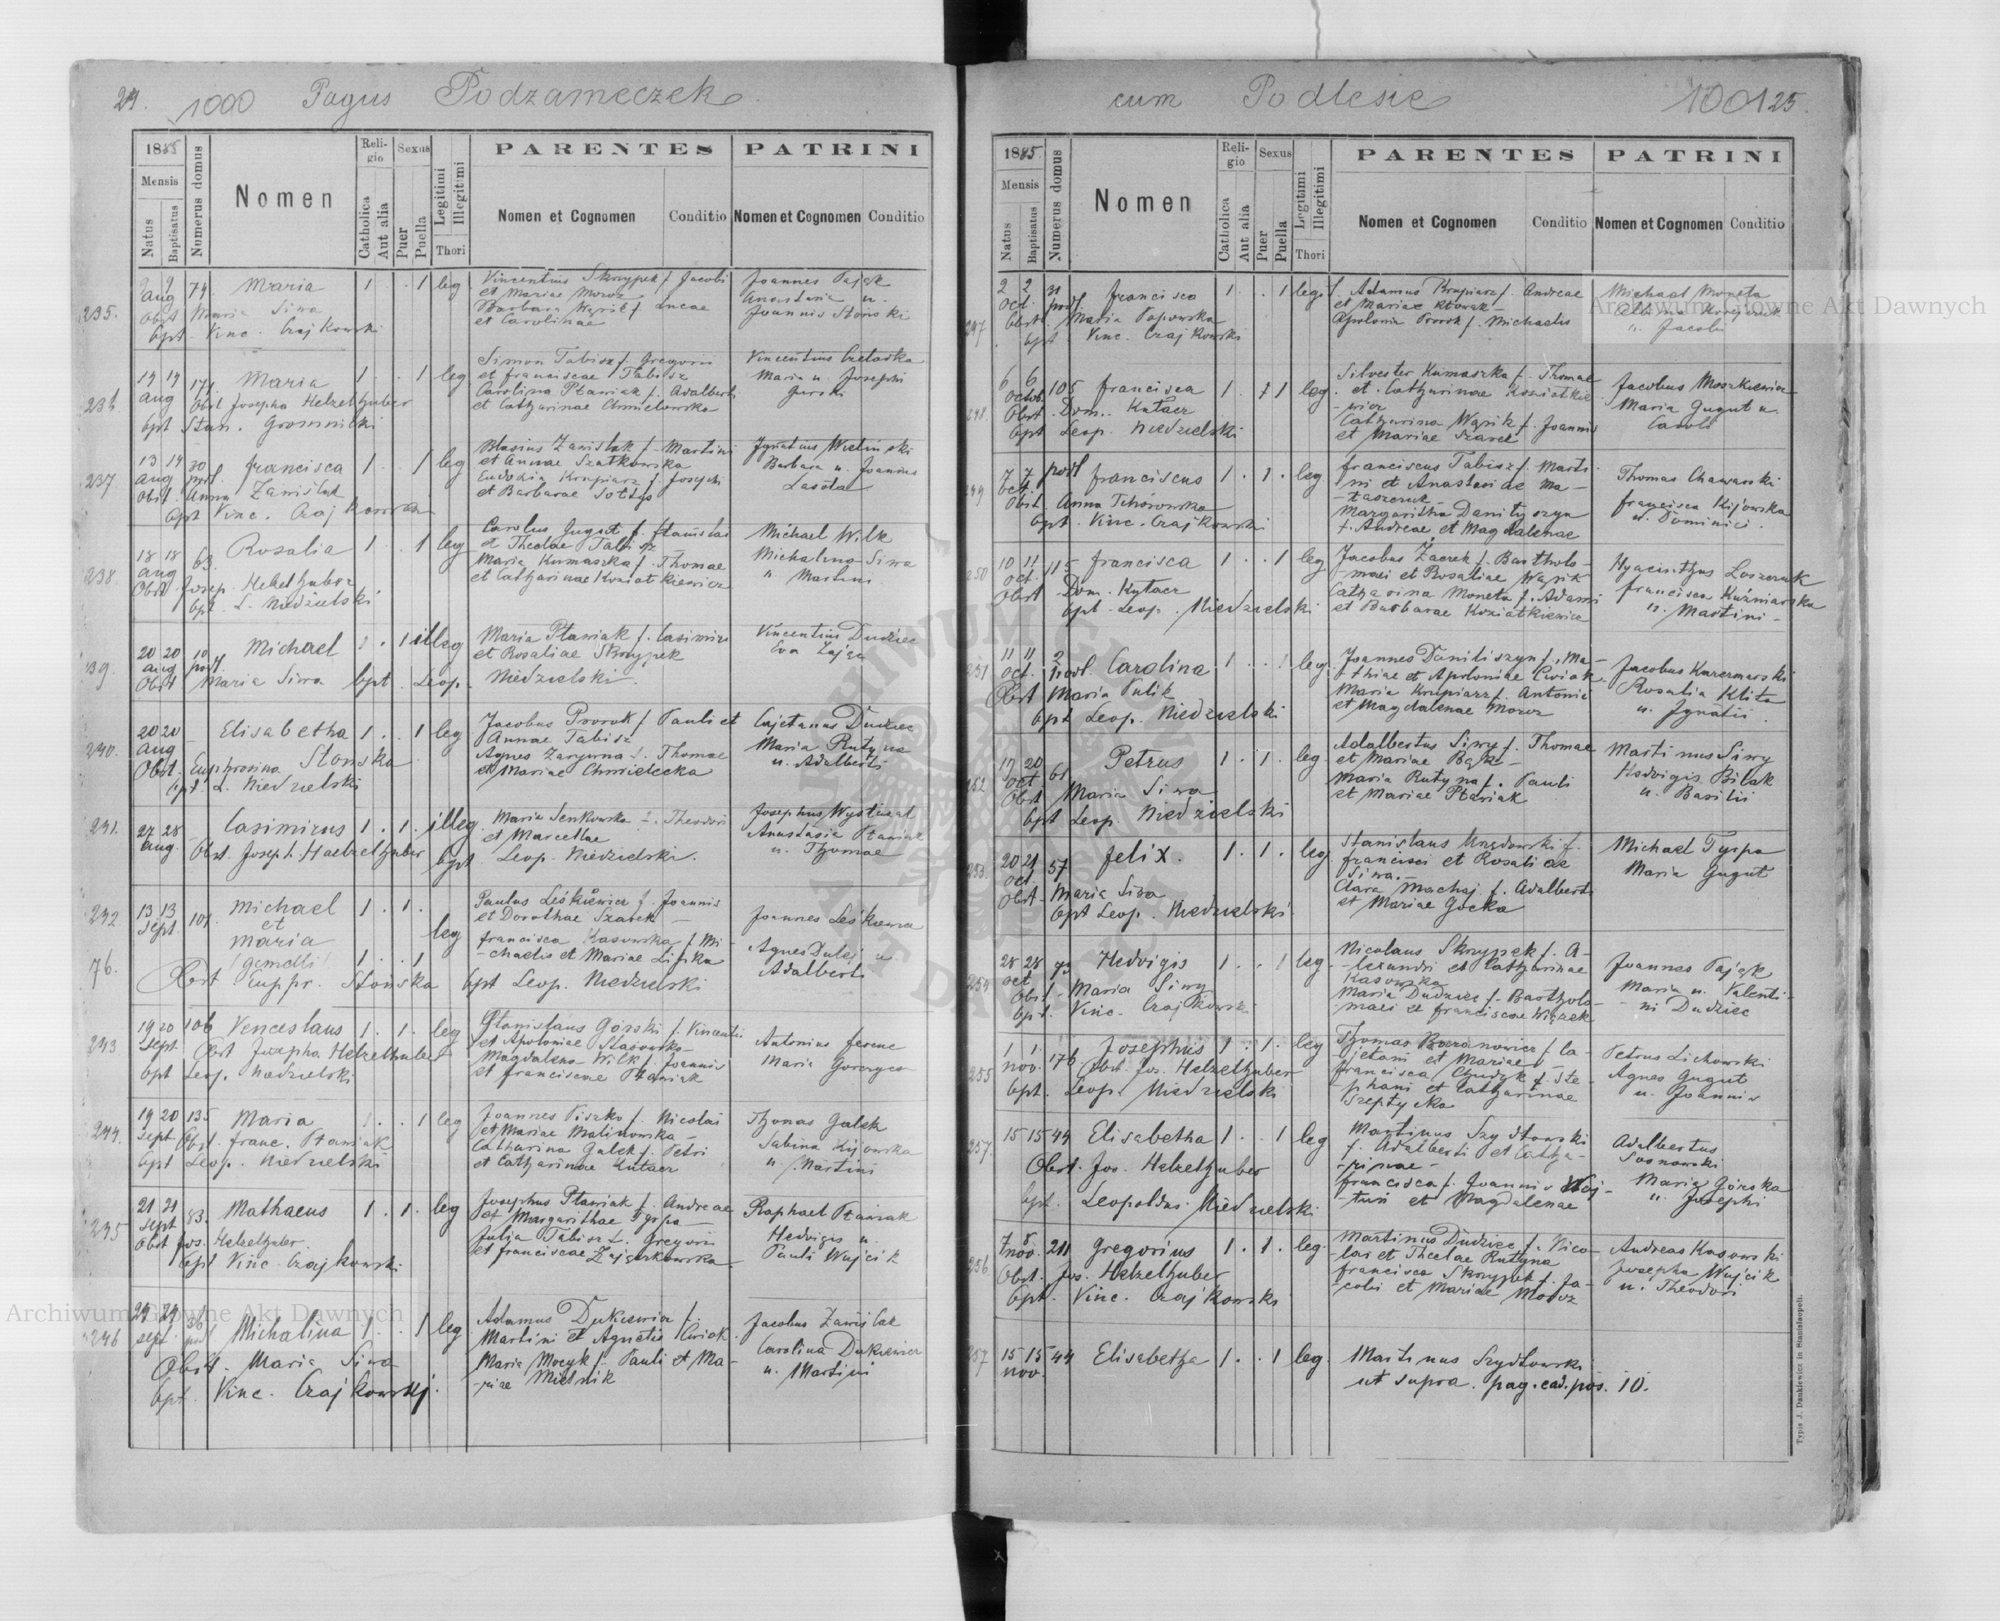 24. 1000 Pagus Podzameczek
1885
Mensis
Natus
Baptisatus
Numerus domus
Nomen
Religio
Catholica
Aut alia
Sexus
Puer
Puella
Legitimi
Illegitimi
Thori
PARENTES
Nomen et Cognomen
Conditio
PATRINI
Nomen et Cognomen
Conditio
235. 9 9 74 Maria 1 . . 1 leg Vincentius Skrzypek f. Jacobi Joannes Pająk
aug et Mariae Moroz Anastasia u.
Obst Maria Siwa Barbara f. Lucae Joannis Stoński
bpt. Vinc. Czajkowski et Carolinae
236 19 19 171 Maria 1 . . 1 leg Simon Tabisz f. Gregorii Vincentius
aug et Franciscae Tabisz Maria u. Josephi
Obst Josepha Helzelhuber Carolina Ptasiak f. Adalberti Gurski
bpt Stan. Gromnitki et Catharinae Chmielowska
237. 13 14 30 Francisca 1 . . 1 leg Blasius Zawiślak f. Martini Ignatius Wieliński
aug podl. et Annae Szatkowska Barbara u. Joannis
Obst. Anna Zawiślak Eudoxia Krupiarz f. Josephi Lasota
bpt Vinc. Czajkowski et Barbarae Sołtys
238 18 18 63. Rosalia 1 . . 1 leg Carolus Gugut f. Stanislai Michael Wilk
aug et Theclae Tabisz Michalina Siwa
Obst. Josep. Helzelhuber Maria Kumaszka f. Thomae u. Martini
bpt. L. Niedzielski et Catharinae Koziatkiewicz
239. 20 20 10 Michael 1 . 1 illeg Maria Ptasiak f. Casimiri Vincentius Dudziec
aug podl. et Rosaliae Skrzypek Eva Zając
Obst Maria Siwa bpt. Leop. Niedzielski.
240. 20 20 Elisabetha 1 . . 1 leg Jacobus Prorok f. Pauli et Cajetanus Dudziec
aug Annae Tabisz Maria Rutyna
Obst. Euphrosina Stońska Agnes f. Thomae u. Adalberti
bpt L. Niedzielski et Mariae Chmielecka
241. 27 28 Casimirus 1 . 1. illeg. Maria Senkowska f. Theodori Josephus
aug et Marcellae Anastasia Ptasiak
Obst. Joseph. Haelzelhuber bpt Leop. Niedzielski. u. Thomae
242 13 13 107 Michael 1 . 1. Paulus Leśkiewicz f. Joannis
sept. et leg et Dorothae Szarek Joannes Leśkiewicz
Maria Francisca Kasowska f. Mi- Agnes Dulej u.
76. (gemelli) 1 . . 1 chaelis et Mariae Lipska Adalberti
Obst Euphr. Stońska bpt Leop. Niedzielski
243. 19 20 106 Venceslaus 1. . 1. leg Stanislaus Górski f. Vincentii
sept. et Apoloniae Antonius Ferenc
Obst Josepha Helzelhuber Magdalena Wilk f. Joannis Maria
bpt Leop. Niedzielski et Franciscae Ptasiak
244. 19 20 135 Maria 1 . . 1 leg Joannes Piszko f. Nicolai Thomas Galek
sept et Mariae Malinowska Sabina Kijowska
Obst. Franc. Ptasiak Catharina Galek f. Petri u. Martini
bpt Leop. Niedzielski et Catharinae Kutacz
245 21 21 83. Mathaeus 1 . 1. leg Josephus Ptasiak f. Andreae Raphael Ptasiak
sept et Margarithae Tyrpa Hedvigis u.
Obst Jos. Helzelhuber Julia Tabisz f. Gregorii Pauli Wujcik
bpt Vinc. Czajkowski et Franciscae Zajączkowska
246 24 24 36 Michalina 1 . . 1 leg Adamus Dukiewicz f. Jacobus Zawiślak
sept podl Martini et Agnetis Ćwiok Carolina Dukiewicz
Obst. Maria Siwa Maria Mocyk f. Pauli et Ma- u. Martini
bpt. Vinc. Czajkowski. riae Mielnik
cum Podlesie 1001 25.
1885.
Mensis
Natus
Baptisatus
Numerus domus
Nomen
Religio
Catholica
Aut alia
Sexus
Puer
Puella
Legitimi
Illegitimi
Thori
PARENTES
Nomen et Cognomen
Conditio
PATRINI
Nomen et Cognomen
Conditio
247 2 2 31 Francisca 1 . . 1 leg. Adamus Krupiarz f. Andreae Michael Moneta
Oct. podl et Mariae
Obst. Maria Popowska Apolonia Prorok f. Michaelis u. Jacobi
bpt Vinc. Czajkowski
248. 6 6 105 Francisca 1 . 1 leg Silvester Kumaszka f. Thomae Jacobus Moszkiewicz
Octob. et Catharinae Koziatkie- Maria Gugut u.
Obst. Dom. Kutacz wicz Caroli
bpt Leop. Niedzielski Catharina Wąsik f. Joannis
et Mariae Szarek
249 7 7 podl Franciscus 1 . 1 . leg Franciscus Tabisz f. Marti- Thomas Chawarski
Oct ni et Anastasiae Ma-
Obst. Anna Tchórowska taszczuk Francisca Kijowska
bpt. Vinc. Czajkowski Margaritha Daniłyszyn u. Dominici.
f. Andreae et Magdalenae
250 10 11 115 Francisca 1 . . 1 leg Jacobus Żaczek f. Bartholo- Hyacinthus Loszczuk
Oct. maei et Rosaliae Wąsik Francisca Kuśniarska
Obst Dom. Kutacz Catharina Moneta f. Adami u. Martini
bpt. Leop. Niedzielski et Barbarae Koziatkiewicz
251 11 11 2 Carolina 1 . . 1 leg Joannes Daniliszyn f. Ma- Jacobus Karczmarski
Oct. podl. thiae et Apoloniae Ćwiok Rosalia Klita
Obst Maria Pulik Maria Krupiarz f. Antonii u. Ignatii.
bpt Leop. Niedzielski et Magdalenae Moroz
252 19 20 61 Petrus 1 . 1. leg. Adalbertus Siwy f. Thomae Martinus Siwy
Oct et Mariae Bąk Hedvigis Bilak
Obst Maria Siwa Maria Rutyna f. Pauli u. Basilii
bpt Leop Niedzielski et Mariae Ptasiak
253. 20 21 57 Felix. 1. 1. leg. Stanislaus f. Michael Tyrpa
oct Francisci et Rosaliae Maria Gugut
Obst. Maria Siwa Siwa.
bpt Leop. Niedzielski Clara Machaj f. Adalberti
et Mariae Gocka
254 28 28 93 Hedvigis 1 . . 1 leg Nicolaus Skrzypek f. A- Joannes Pająk
oct lexandri et Catharinae Maria u. Valenti-
Obst. Maria Siwy Kasowska ni Dudziec
bpt. Vinc. Czajkowski Maria Dudziec f. Bartholo-
maei et Franciscae Więzek
255 1 1 176 Josephus 1 . 1. leg Thomas Baranowicz f. Ca- Petrus Lichowski
nov. jetani et Mariae Agnes Gugut
Obst. Jos. Helzelhuber Francisca Chudyk f. Ste- u. Joannis
bpt. Leop. Niedzielski phani et Catharinae
Szeptycka
257. 15 15 44 Elisabetha 1 . . 1 leg Martinus Szydłowski Adalbertus
Obst. Jos. Helzelhuber f. Adalberti et Catha- Sosnowski
rinae Maria Górska
bpt. Leopoldus Niedzielski Francisca f. Joannis Woj- u. Josephi
tuń et Magdalenae
256. 7 8 211 Gregorius 1 . 1 . leg. Martinus Dudziec f. Nico- Andreas Kasowski
nov. lai et Theclae Rutyna Josepha Wujcik
Obst. Jos. Helzelhuber Francisca Skrzypek f. Ja- u. Theodori
bpt. Vinc. Czajkowski cobi et Mariae Moroz
257 15 15 44 Elisabetha 1 . . 1 leg. Martinus Szydłowski
nov. ut supra. pag. ead. pos. 10.
Typis J. Dankiewicz in Stanislaopoli.
Archiwum Główne Akt Dawnych
Archiwum Główne Akt Dawnych
ARCHIWUM GŁÓWNE AKT DAWNYCH